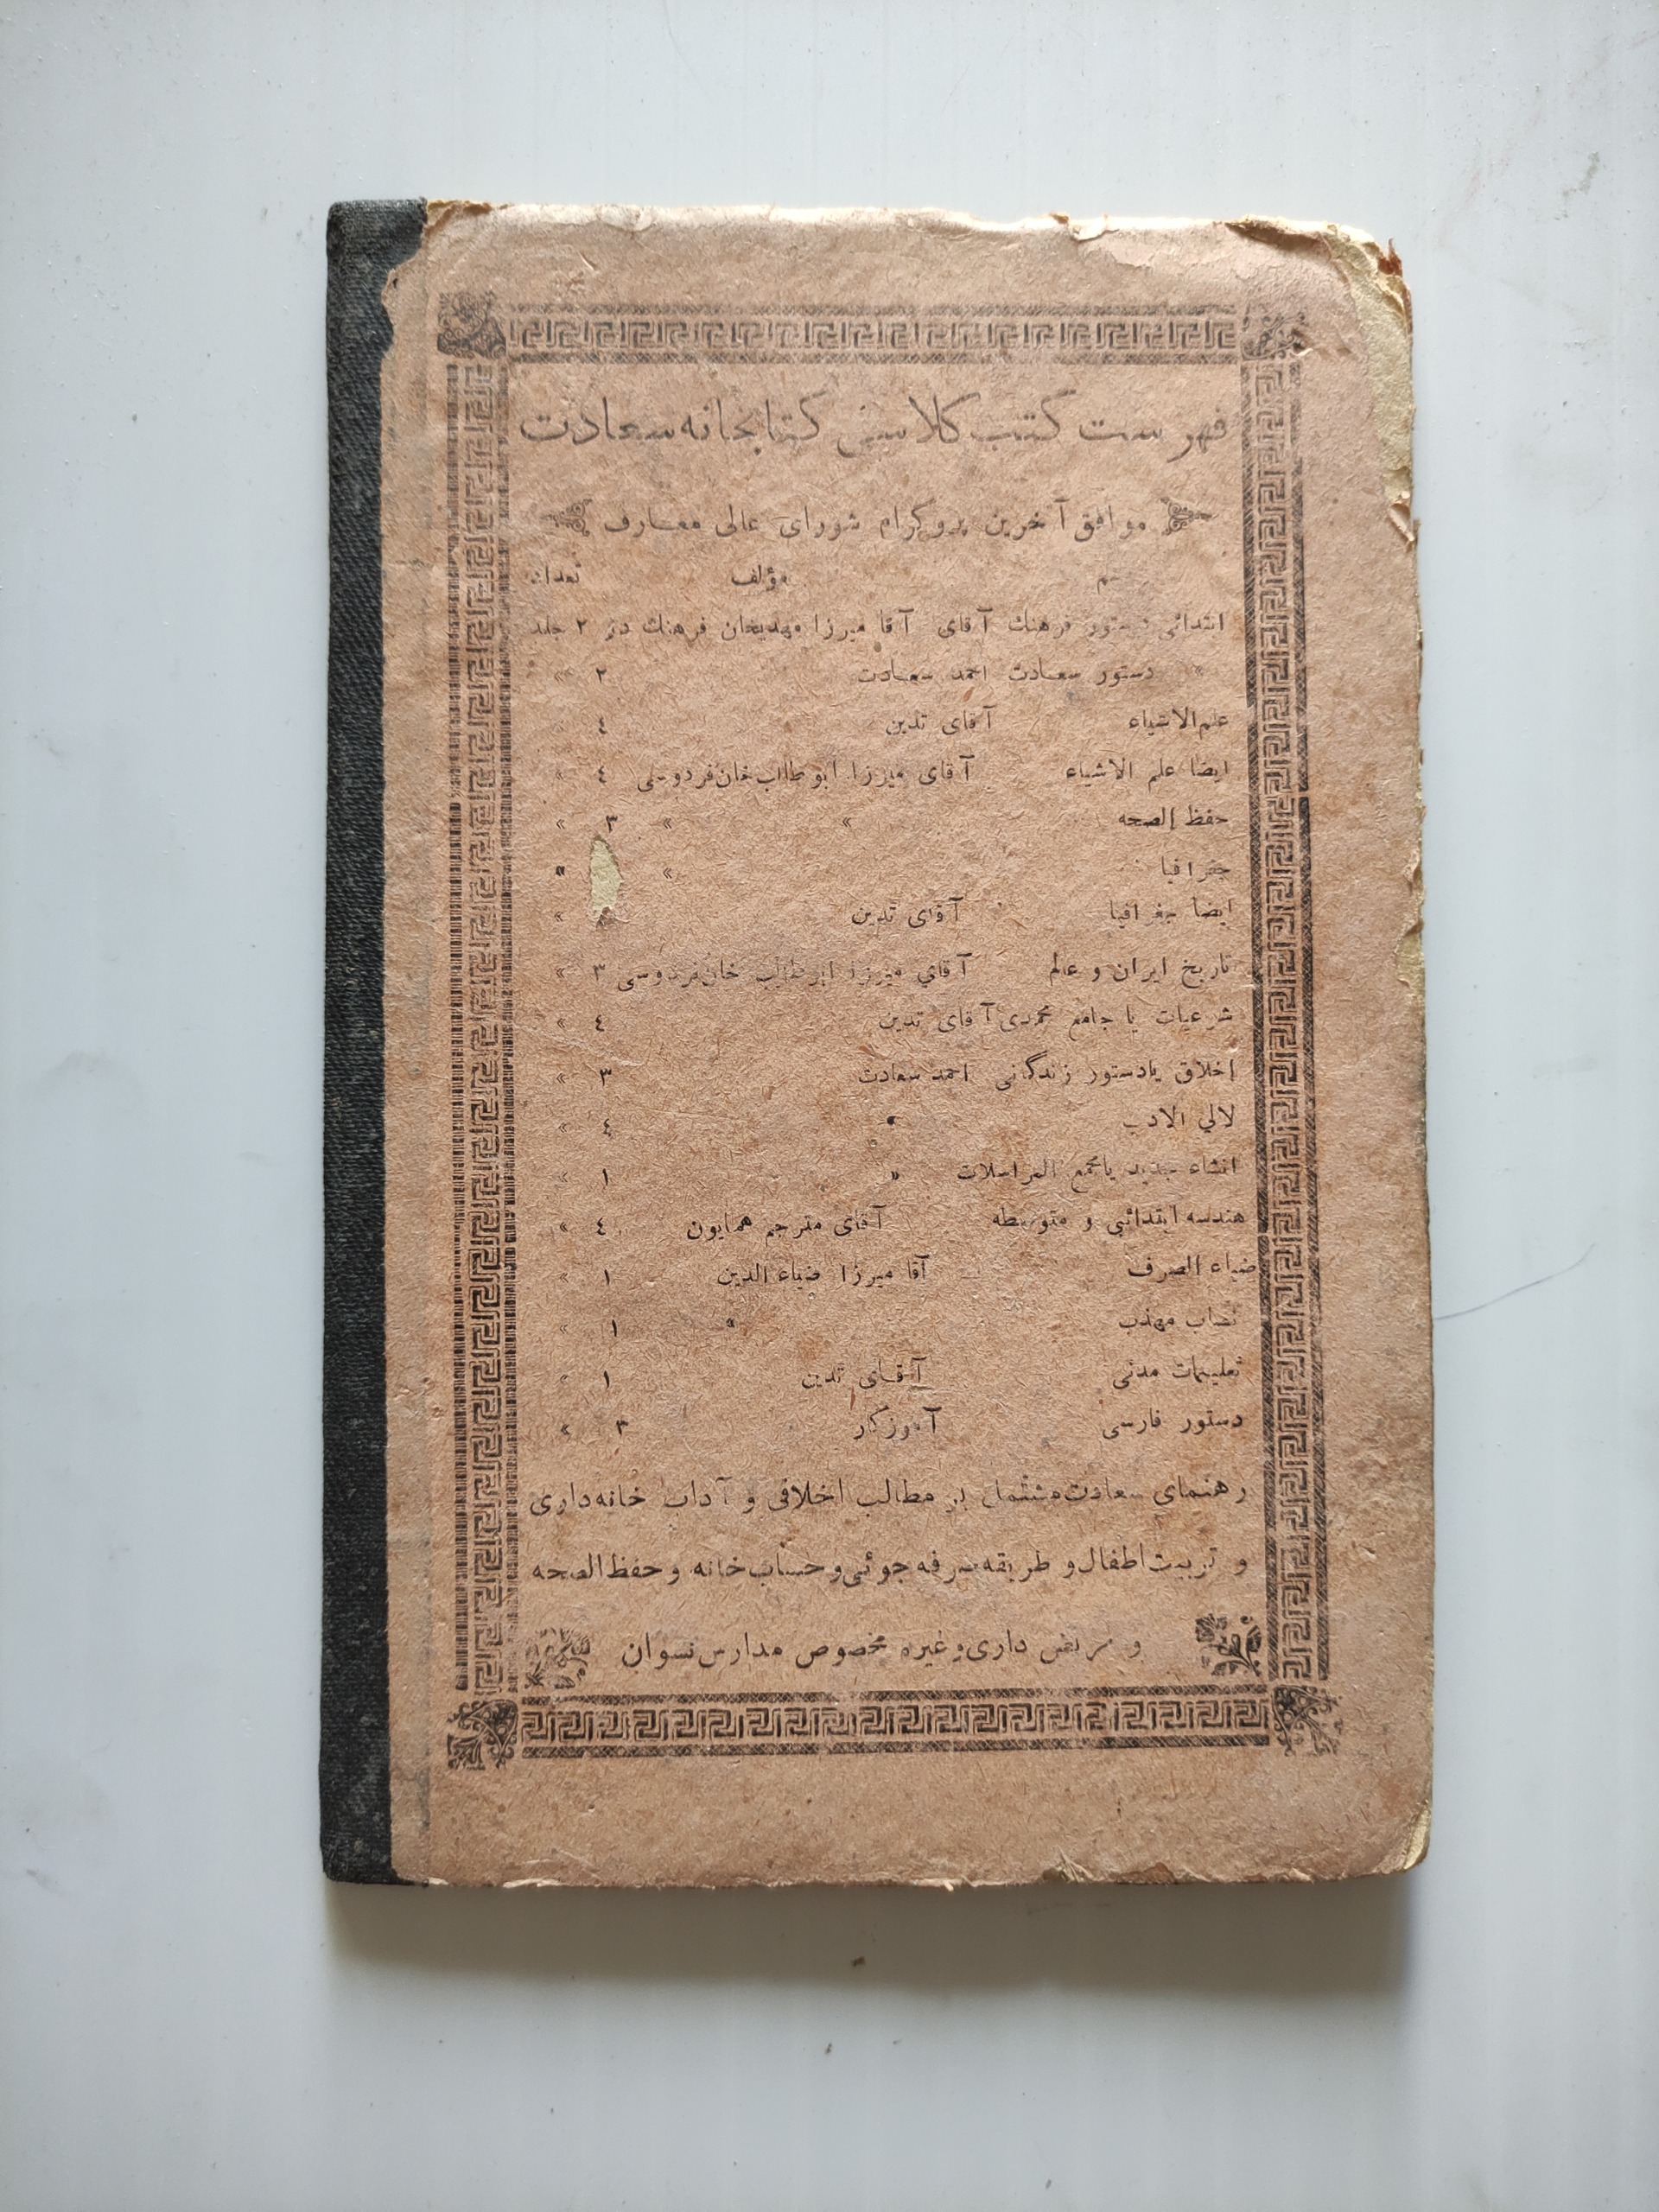 فهرست کتب کلاسی کتابخانه سعادت
موافق آخرین پروگرام شورای عالی معارف
مؤلف تعداد
ابتدائی دستور فرهنك آقای آقا میرزا مهدیخان فرهنك دو ۲ جلد
« دستور سعادت احمد سعادت ۲ «
علم‌الاشیاء آقای تدین ٤ «
ایضا علم الاشیاء آقای میرزا ابوطالب‌خان‌فردوسی ٤ «
حفظ الصحه « « ۳ «
جغرافیا « «
ایضا جغرافیا آقای تدین «
تاریخ ایران و عالم آقای میرزا ابوطالب خان‌فردوسی ۳ «
شرعیات یا جامع محمدی آقای تدین ٤ «
اخلاق یادستور زندگانی احمد سعادت ۳ «
لالي الادب « ٤ «
انشاء جدید یامجمع المراسلات « ۱ «
هندسه ابتدائی و متوسطه آقای مترجم همایون ٤ «
ضیاء الصرف آقا میرزا ضیاء الدین ۱ «
نصاب مهذب « ۱ «
تعلیمات مدنی آقای تدین ۱ «
دستور فارسی آموزگار ۳ «
رهنمای سعادت مشتمل بر مطالب اخلاقی و آداب خانه‌داری
و تربیت اطفال و طریقه صرفه جوئی و حساب خانه و حفظ الصحه
و مریض داری و غیره مخصوص مدارس نسوان